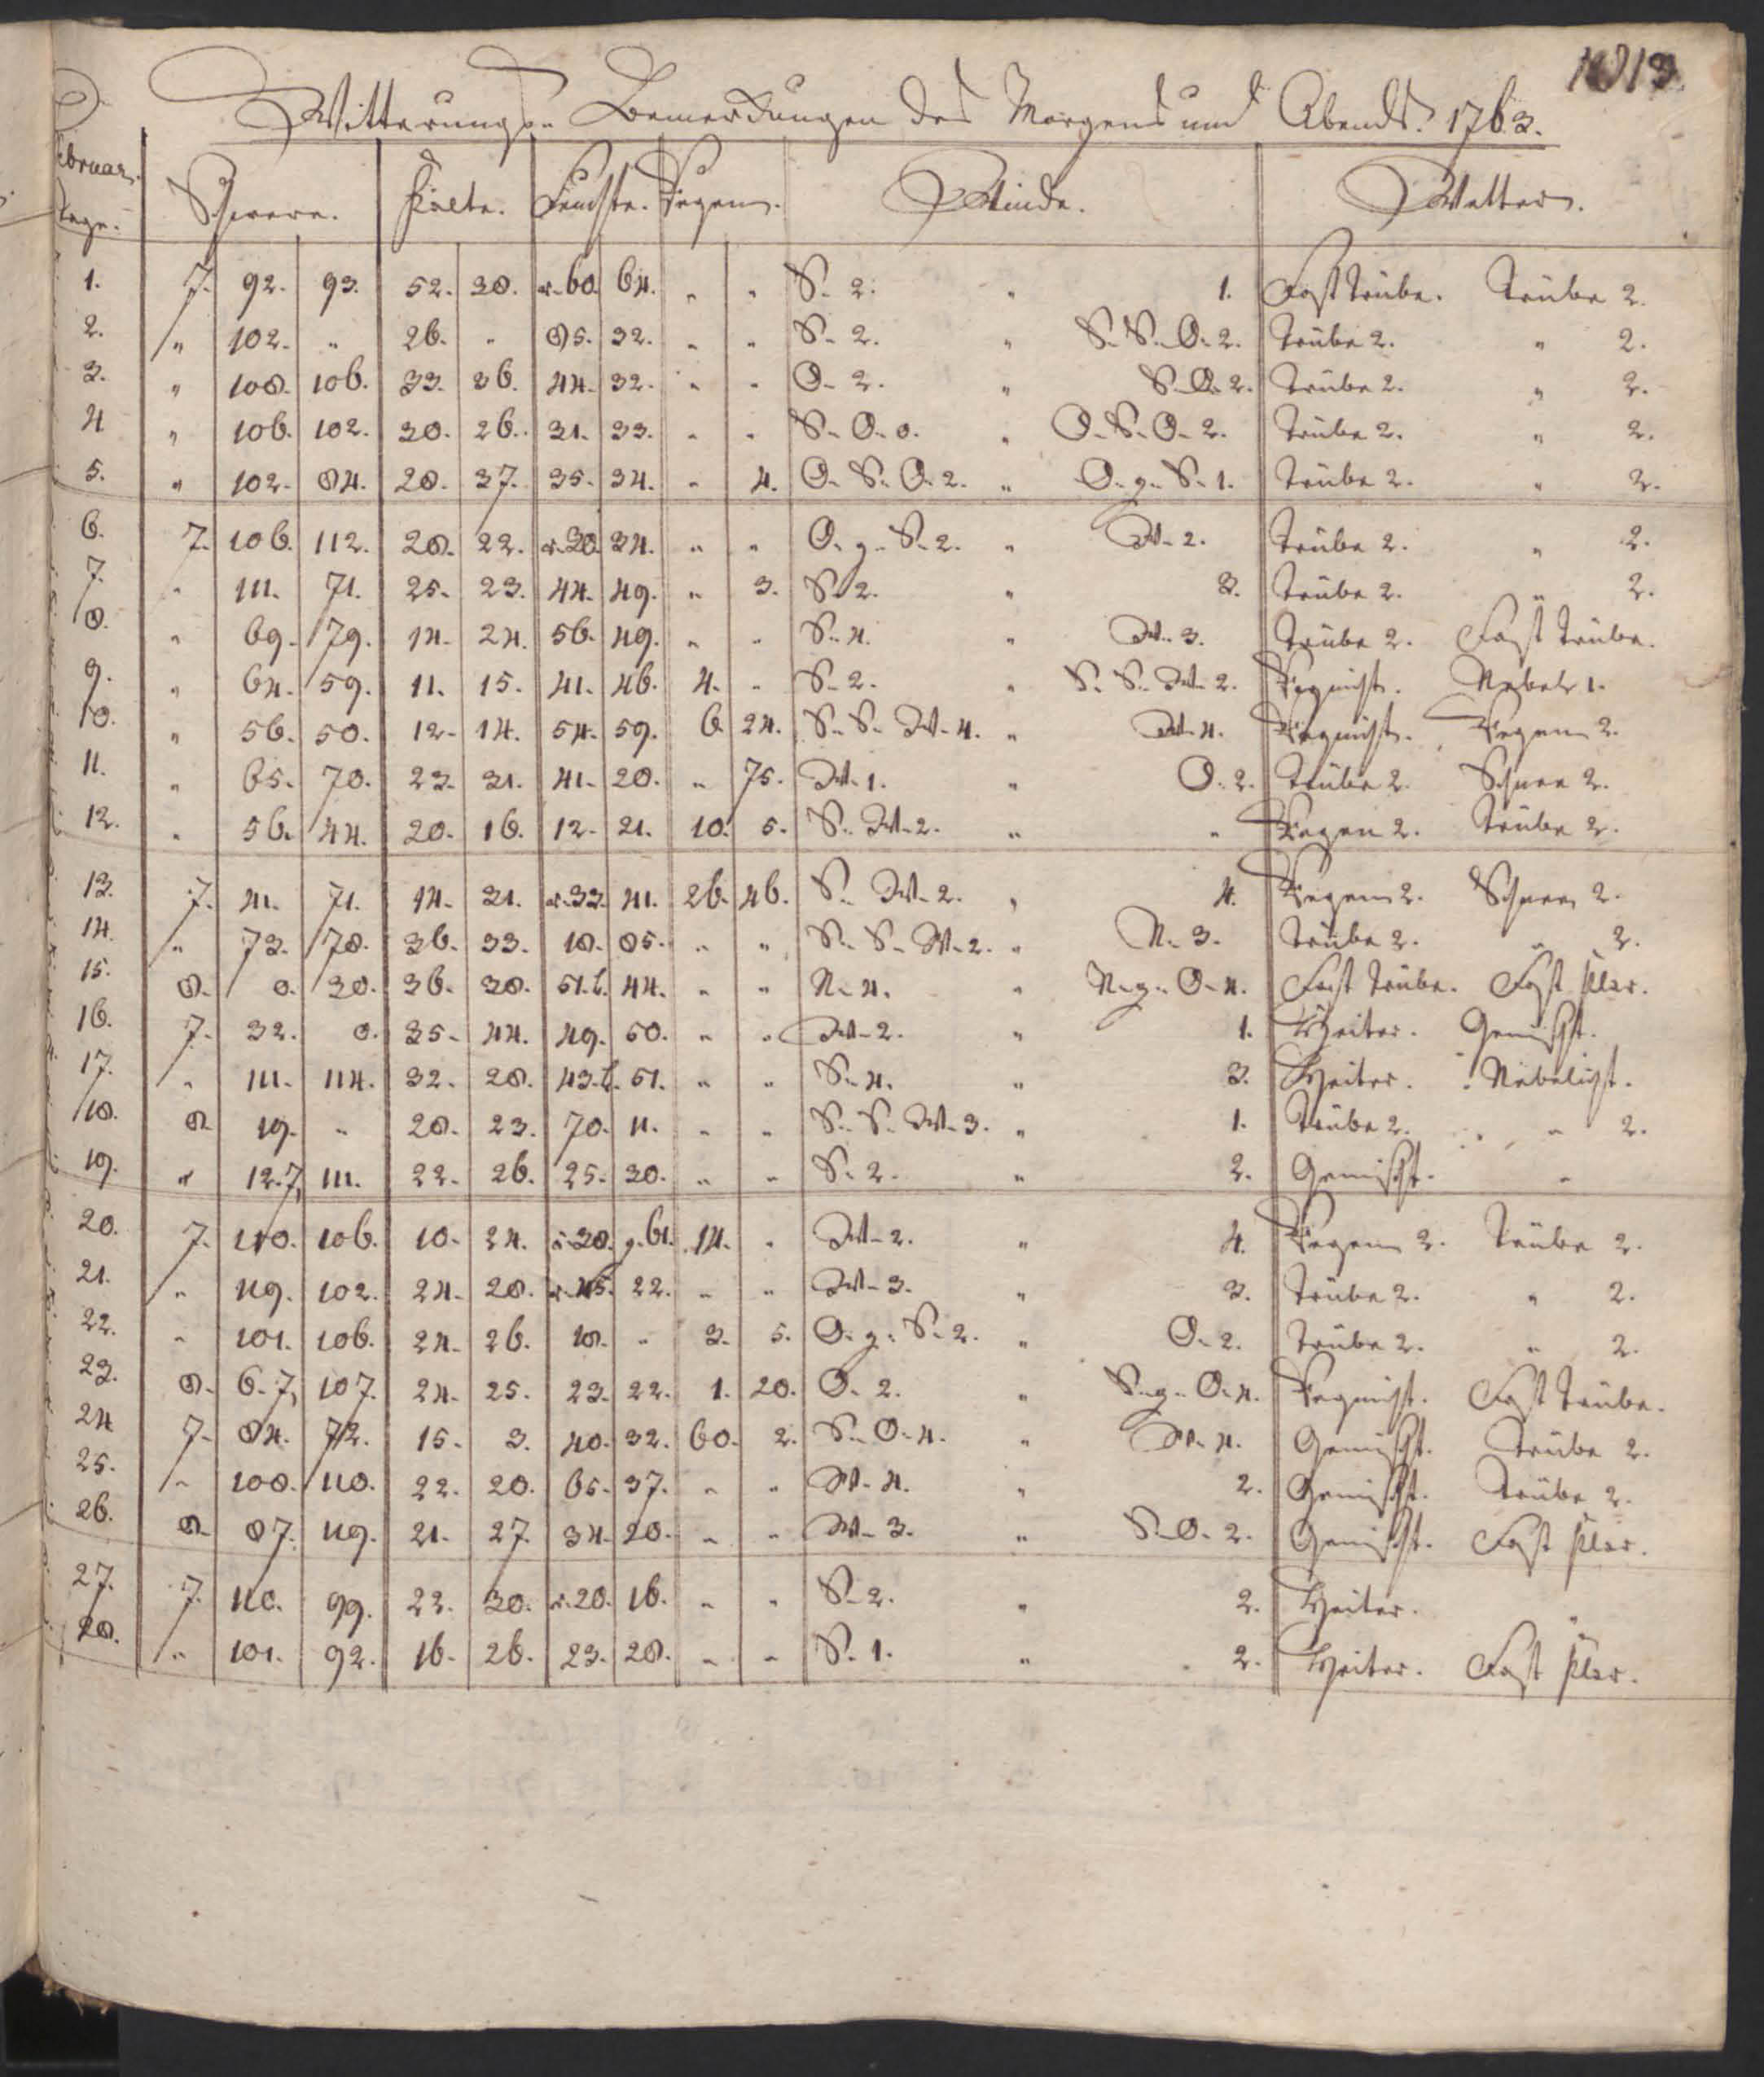 Witterungs- Bemerckungen des Morgens und Abends. 1763.
Februar. Tage. Schwere. Kälte. Feuchte. Regen. Winde. Wetter.
1. 7. 92. 93. 52. 38. r. 60. 64. " " S. 2. " 1. Fast trübe. Trübe 2.
2. " 102. " 26. " 85. 32. " " S. 2. " S. S. O. 2. Trübe 2. " 2.
3. " 108. 106. 33. 36. 44. 32. " " O. 2. " S. O. 2. Trübe 2. " 2.
4 " 106. 102. 30. 26. 31. 33. " " S. O. 0. " O. S. O. 2. Trübe 2. " 2.
5. " 102. 84. 28. 37. 35. 34. " 4. O. S. O. 2. " O. g. S. 1. Trübe 2. " 2.
6. 7. 106. 112. 28. 22. r. 38. 34. " " O. g. S. 2. " W. 2. Trübe 2. " 2.
7. " 111. 71. 25. 23. 44. 49. " 3. S. 2. " 3. Trübe 2. " 2.
8. " 69. 79. 14. 24. 56. 49. " " S. 4. " W. 3. Trübe 2. Fast trübe.
9. " 64. 59. 11. 15. 41. 46. 4. " S. 2. " S. S. W. 2. Regnicht. Nebel 1.
10. " 56. 50. 12. 14. 54. 59. 6. 24. S. S. W. 4. " W. 4. Regnicht. Regen 2.
11. " 65. 70. 23. 31. 41. 20. " 75. W. 1. " O. 2. Trübe 2. Schnee 2.
12. " 56. 44. 20. 16. 12. 21. 10. 5. S. W. 2. " " Regen 2. Trübe 2.
13. 7. 41. 71. 14. 31. r. 33. 41. 26. 46. S. W. 2. " 4. Regen 2. Schnee 2.
14. " 73. 78. 36. 33. 18. 85. " " S. S. W. 2. " N. 3. Trübe 2. " 2.
15. 8. 0. 30. 36. 38. 51. b. 44. " " N. 4. " N. g. O. 4. Fast trübe. Fast klar.
16. 7. 32. 0. 35. 44. 49. 50. " " W. 2. " 1. Heiter. Gemischt.
17. " 111. 114. 32. 28. 43. b. 51. " " S. 4. " 3. Heiter. Nebelicht.
18. 8. 19. " 28. 23. 70. 11. " " S. S. W. 3. " 1. Trübe 2. " 2.
19. " 12. 7, 111. 22. 26. 25. 30. " " S. 2. " 2. Gemischt. "
20. 7. 110. 106. 10. 24. r. 38. g. 61. 14. " W. 2. " 4. Regen 2. Trübe 2.
21. " 119. 102. 24. 28. r. 45. 22. " " W. 3. " 3. Trübe 2. " 2.
22. " 101. 106. 24. 26. 18. " 3. 5. O. g. S. 2. " O. 2. Trübe 2. " 2.
23. 8. 6. 7, 107. 24. 25. 23. 22. 1. 20. O. 2. " S. g. O. 4. Regnicht. Fast trübe.
24 7. 84. 72. 15. 3. 40. 32. 60. 2. S. O. 4. " W. 4. Gemischt. Trübe 2.
25. " 108. 110. 22. 20. 65. 37. " " W. 4. " 2. Gemischt. Trübe 2.
26. 8. 87. 119. 21. 27. 34. 20. " " W. 3. " S. O. 2. Gemischt. Fast klar.
27. 7. 110. 99. 22. 30. r. 20. 16. " " S. 2. " 2. Heiter. "
28. " 101. 92. 16. 26. 23. 28. " " S. 1. " 2. Heiter. Fast klar.